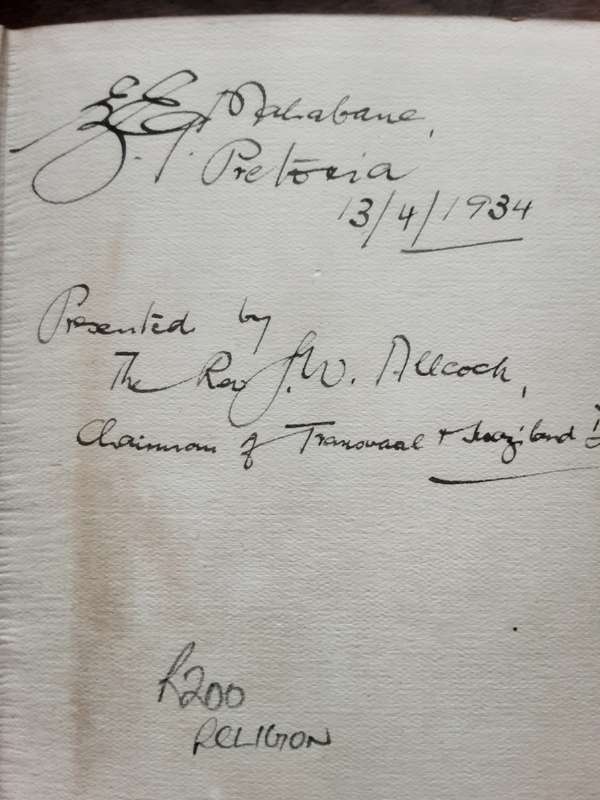 E. E. Mahabane,
Pretoria
13/4/1934
Presented by
The Rev J. W. Allcock,
Chairman of Transvaal & Swaziland
R200
RELIGION